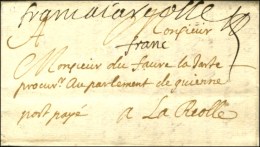 franc a la reolle
A Monsieur
franc
Monsieur du faure la Jarte
procur. Au parlement de guienne
port payé a La Reolle